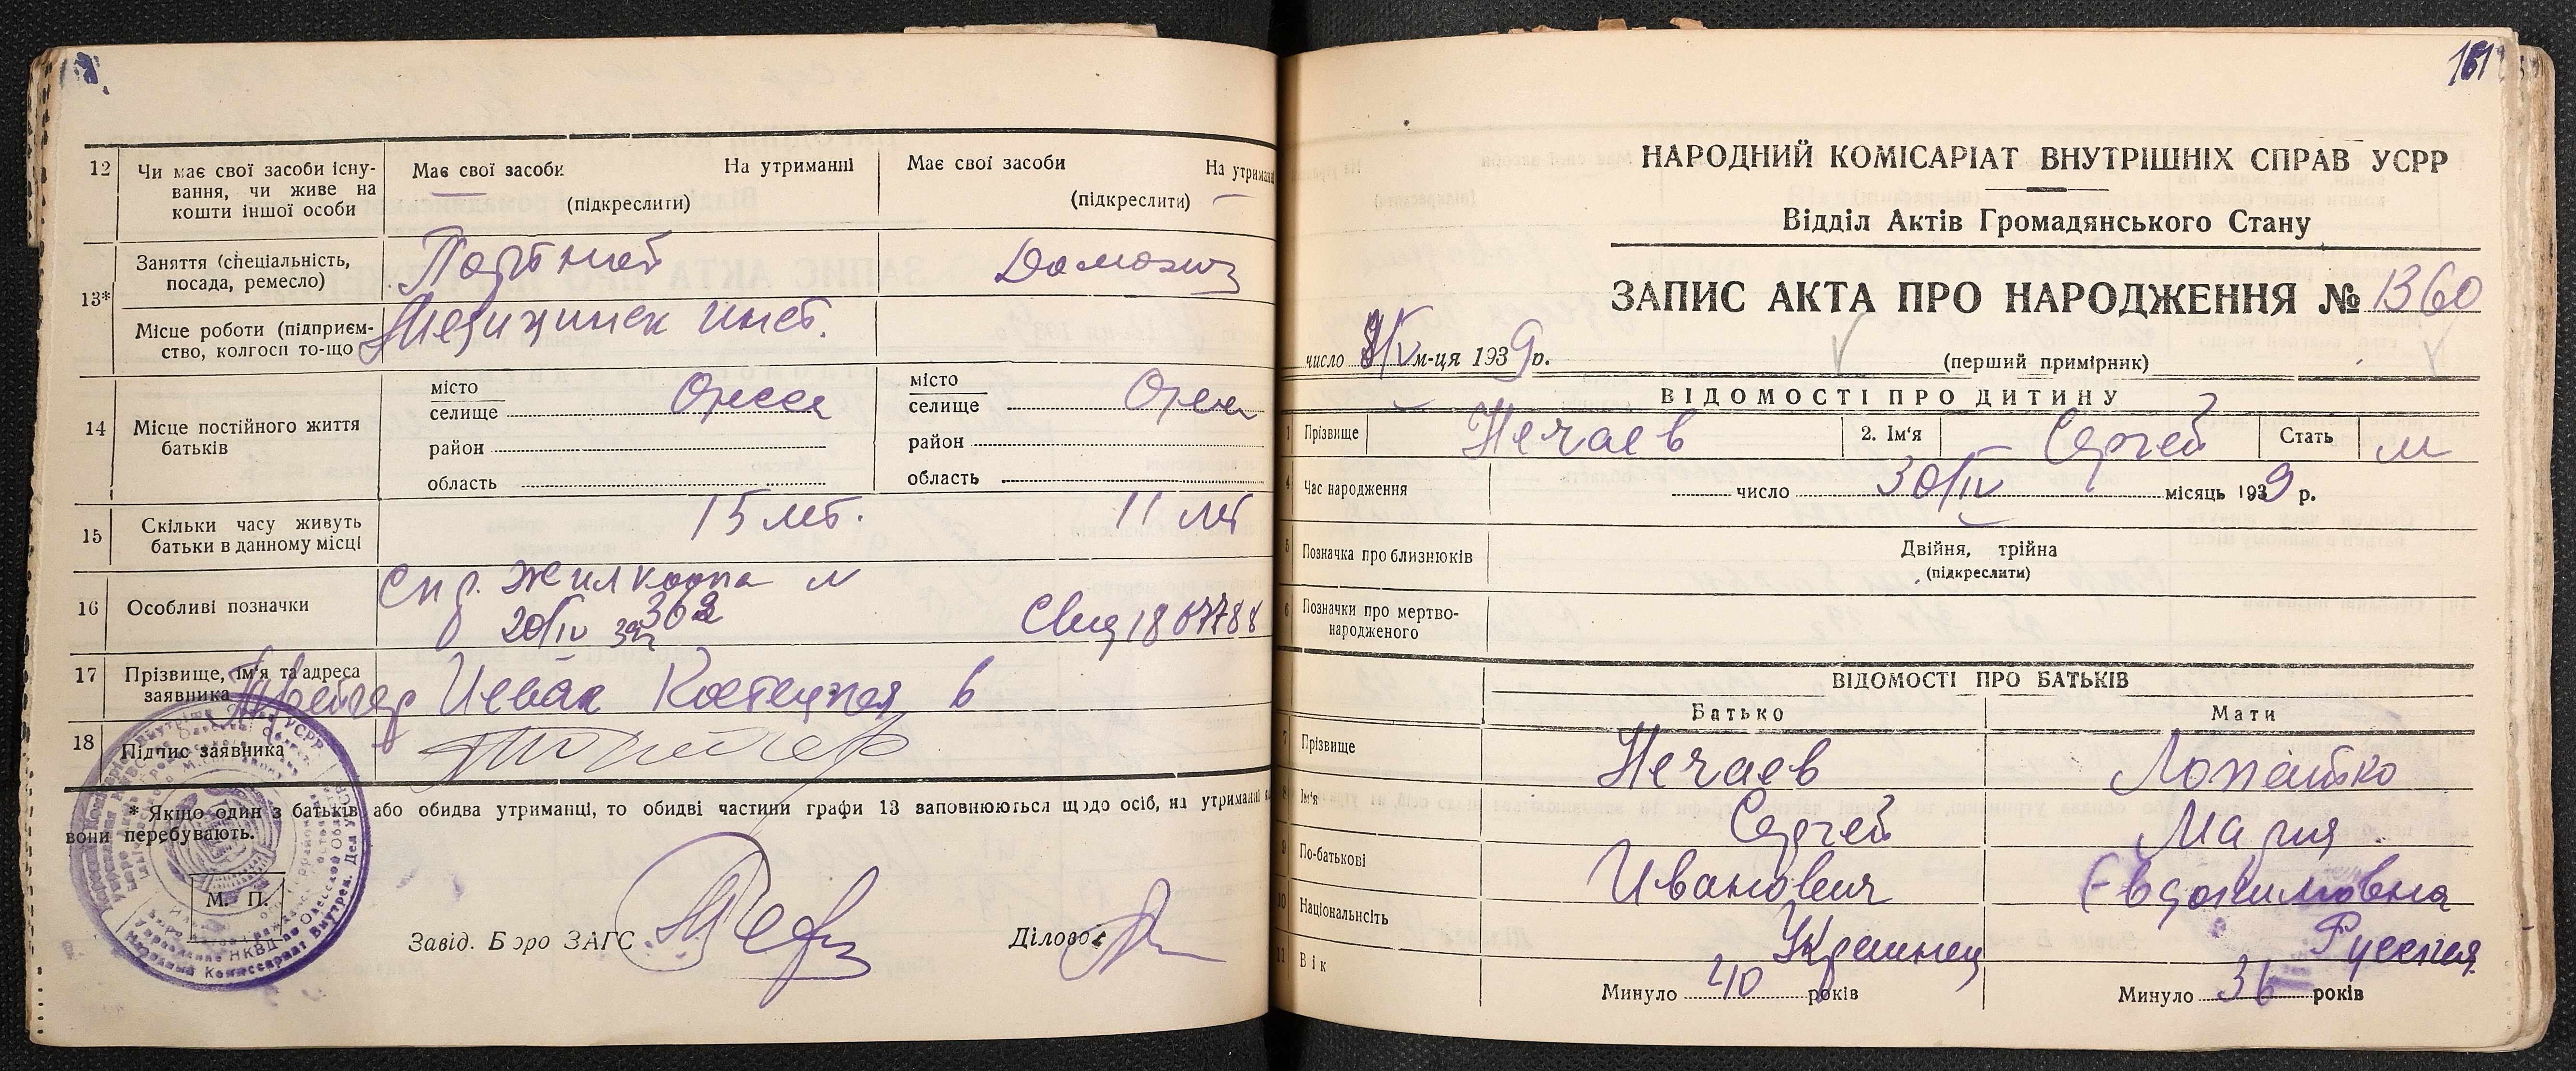 12 Чи має свої засоби існу-
вання, чи живе на
кошти іншої особи
Має свої засоби На утриманні
(підкреслити)
Має свої засоби На утриман
(підкреслити)
13* Заняття (спеціальність,
посада, ремесло)
Портной
Домохоз
Місце роботи (підприєм-
ство, колгосп то-що
Медицинск инст.
14 Місце постійного життя
батьків
місто
селище Одесса
район
область
місто
селище Одеса
район
область
15 Скільки часу живуть
батьки в данному місці
15 лет.
11 лет
16 Особливі позначки
Спр. Жилкоопа №
362
20/IV 39г
Свид 1867788
17 Прізвище, ім'я та адреса
заявника
Костецкая 6
18 Підпис заявника
* Якщо один з батьків або обидва утриманці, то обидві частини графи 13 заповнюються щодо осіб, на утриманні
вони перебувають.
М. П.
Завід. Бюро ЗАГС
Діловод
161
НАРОДНИЙ КОМІСАРІАТ ВНУТРІШНІХ СПРАВ УСРР
Відділ Актів Громадянського Стану
ЗАПИС АКТА ПРО НАРОДЖЕННЯ № 1360
число /V м-ця 1939 р.
(перший примірник)
ВІДОМОСТІ ПРО ДИТИНУ
1 Прізвище Нечаев 2. Ім'я Сергей Стать м
4 Час народження число 30/IV місяць 1939 р.
5 Позначка про близнюків Двійня, трійна
(підкреслити)
6 Позначки про мертво-
народженого
ВІДОМОСТІ ПРО БАТЬКІВ
Батько Мати
7 Прізвище Нечаев Лопатко
8 Ім'я Сергей Мария
9 По-батькові Иванович Евдокимовна
10 Національність Украинец Русская
11 Вік Минуло 40 років Минуло 36 років